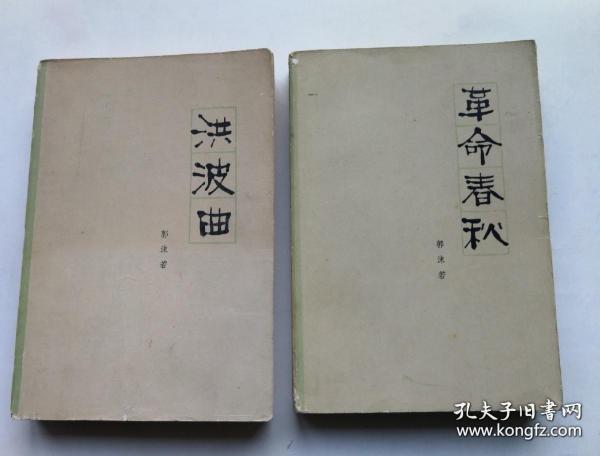 洪波曲
郭沫若
革命春秋
郭沫若
孔夫子旧书网
www.kongfz.com